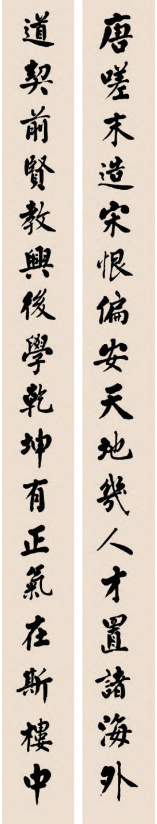 唐嗟末造宋恨偏安天地幾人才置諸海外
道契前賢教興後學乾坤有正氣在斯樓中